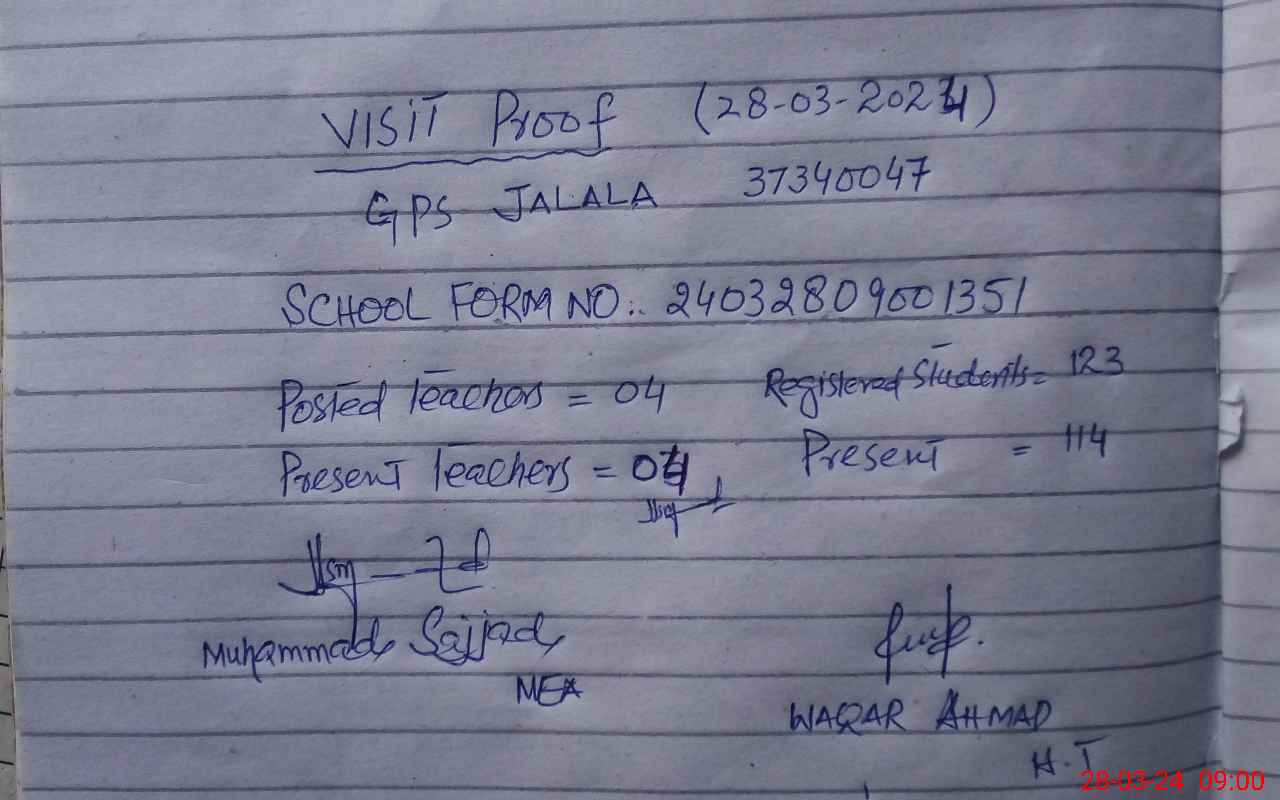 VISIT Proof (28-03-2024)
GPS JALALA 37340047
SCHOOL FORM NO:. 24032809001351
Posted teachers = 04 Registered Students= 123
Present teachers = 04 Present = 114
Muhammad Sajjad
MEA
WAQAR AHMAD
H.T
28-03-24 09:00